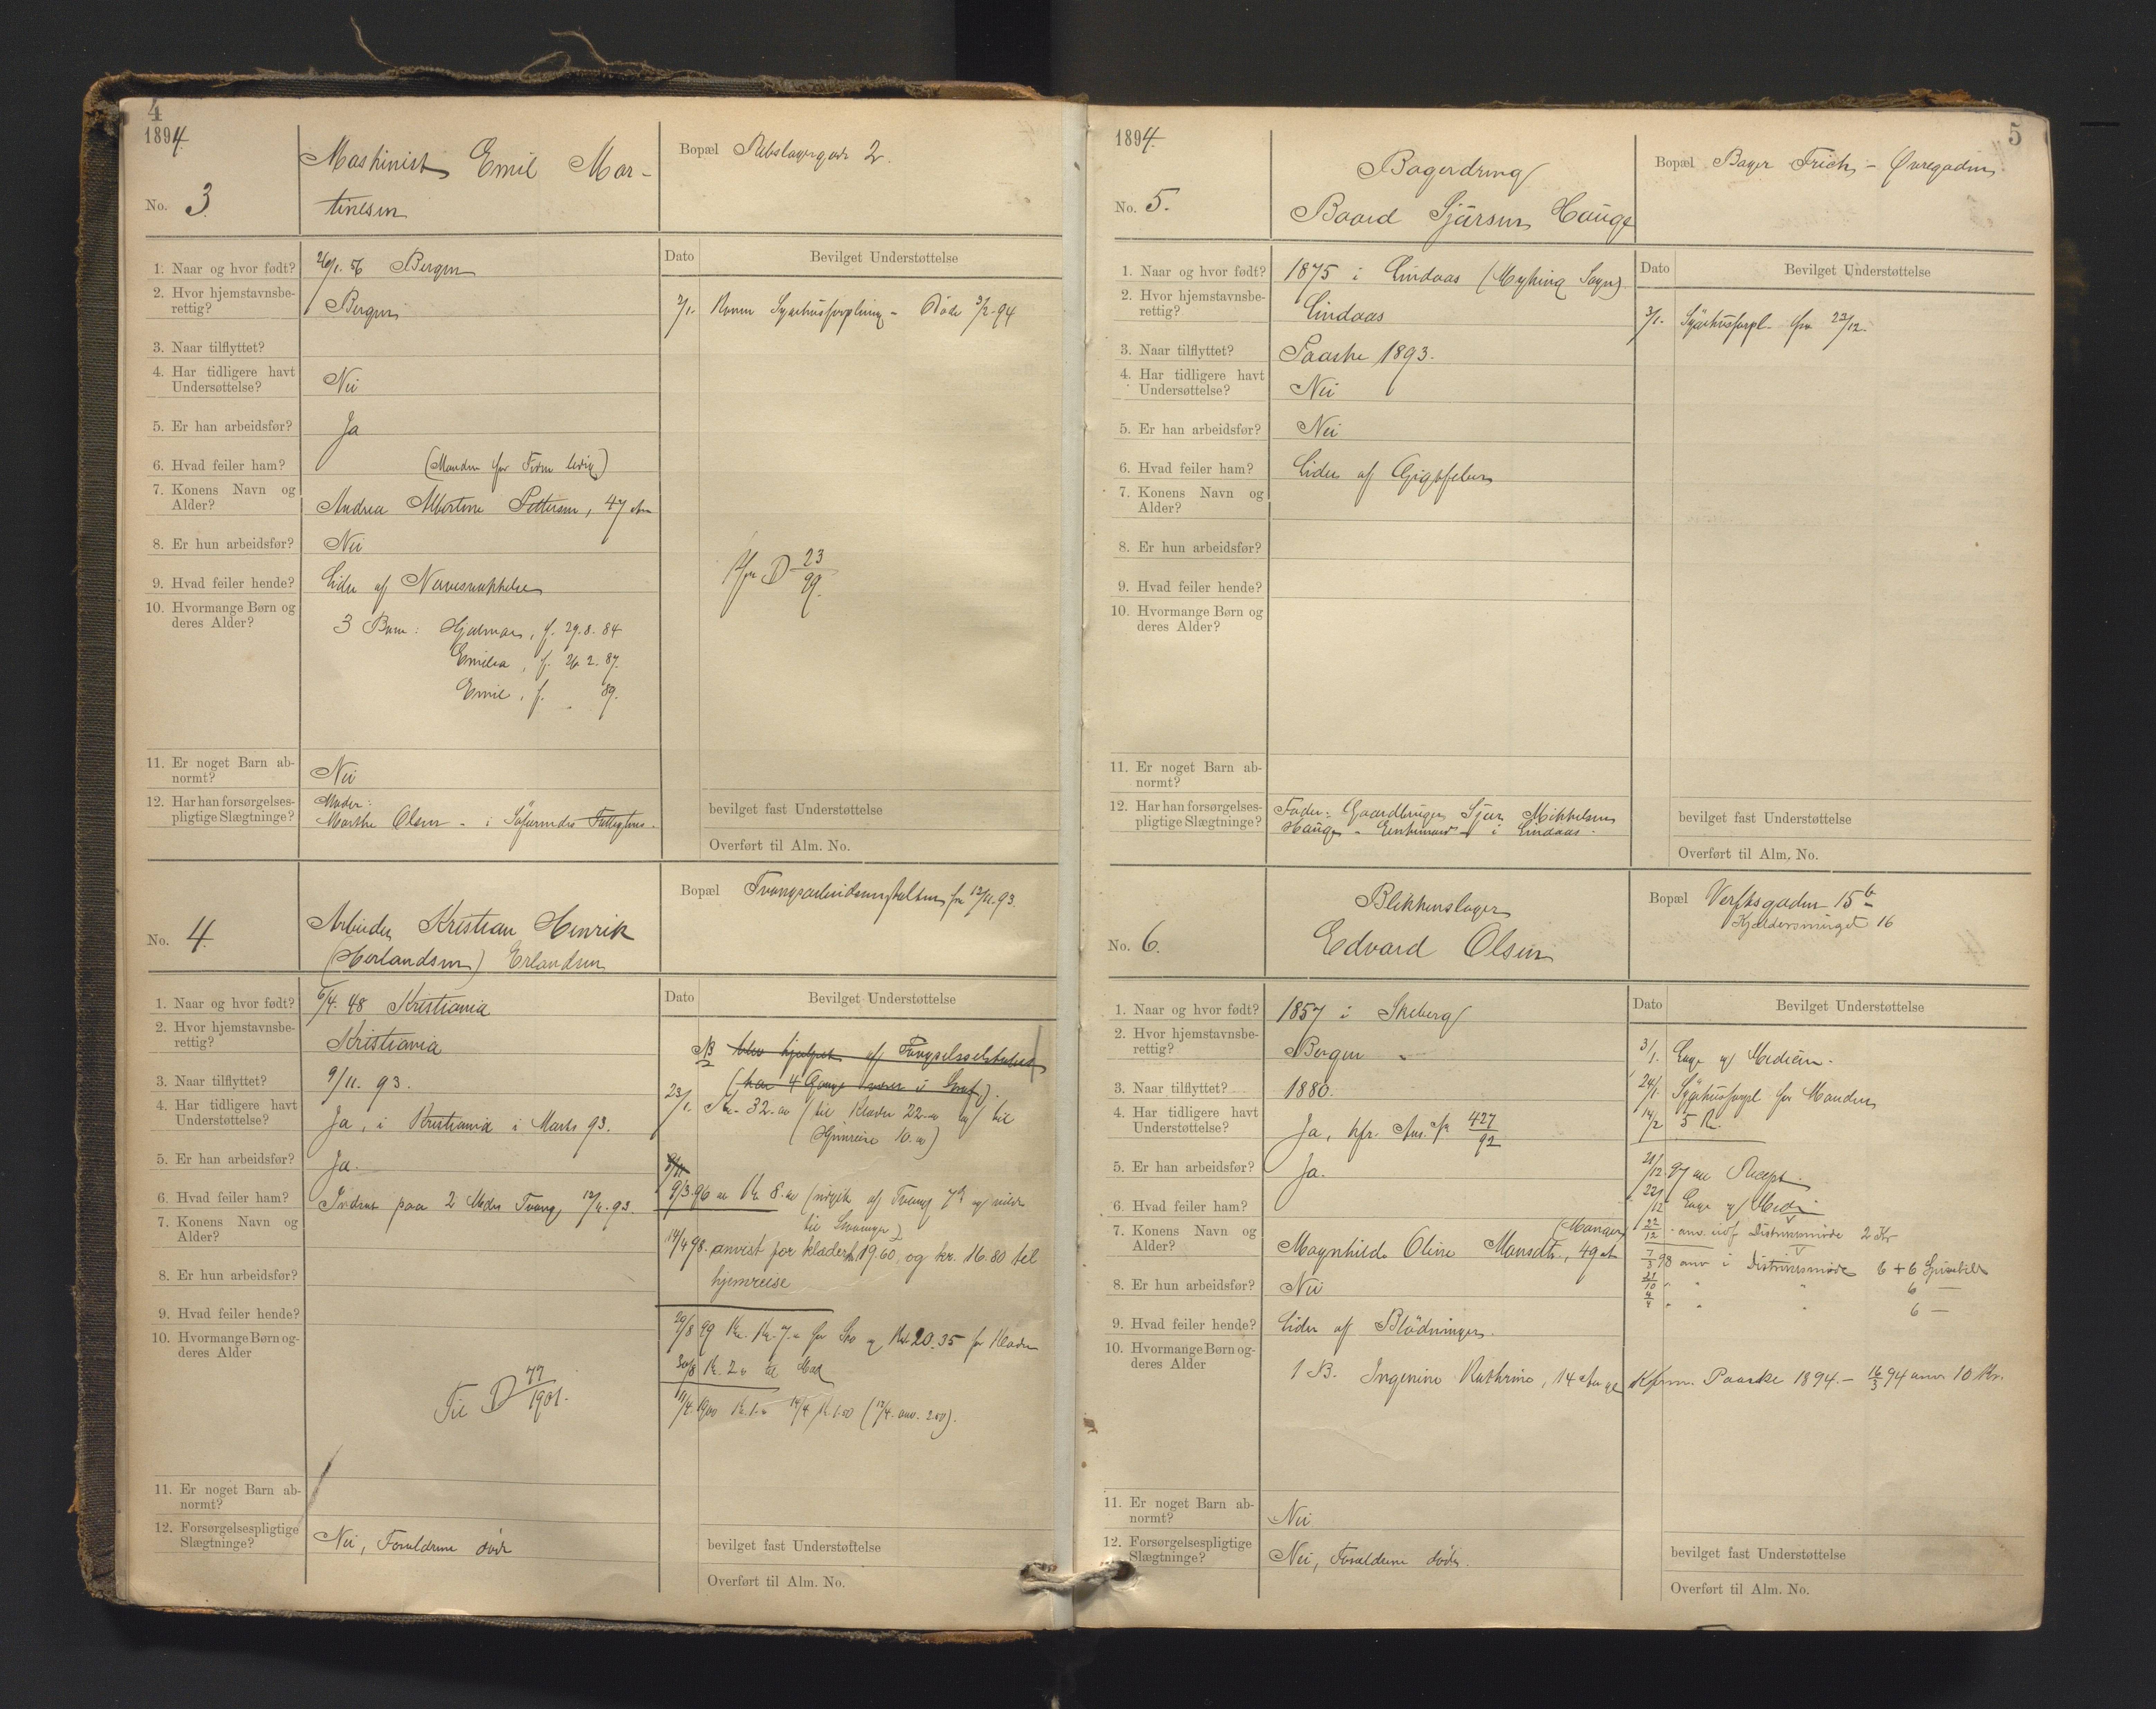 4
1894
No. 3.
Maskinist Emil Mar-
tinesen
Bopæl Rebslagergade 2.
1. Naar og hvor født? 26/1. 56 Bergen
2. Hvor hjemstavnsbe-
rettig? Bergen
3. Naar tilflyttet?
4. Har tidligere havt
Undersøttelse? Nei
5. Er han arbeidsfør? Ja
6. Hvad feiler ham? (Manden for Tiden ledig)
7. Konens Navn og
Alder? Andrea Albertine Pettersen, 47 Aar
8. Er hun arbeidsfør? Nei
9. Hvad feiler hende? Lider af Nervesvækkelse
10. Hvormange Børn og
deres Alder? 3 Børn: Hjalmar, f. 29.8.84
Emilia, f. 26.2.87.
Emil, f. 89.
11. Er noget Barn ab-
normt? Nei
12. Har han forsørgelses-
pligtige Slægtninge? Moder:
Marthe Olsen - i Fattighus.
Dato Bevilget Understøttelse
2/1. Konen Sygehusforpleining - Døde 3/2. 94
D 23/99.
bevilget fast Understøttelse
Overført til Alm. No.
No. 4.
Arbeider Kristian Henrik
(Herlandsen) Erlandsen
Bopæl Tvangsarbeidsanstalten fra 12/11.93.
1. Naar og hvor født? 6/4. 48 Kristiania
2. Hvor hjemstavnsbe-
rettig? Kristiania
3. Naar tilflyttet? 9/11. 93.
4. Har tidligere havt
Understøttelse? Ja, i Kristiania i Marts 93.
5. Er han arbeidsfør? Ja.
6. Hvad feiler ham? Indsat paa 2 Mdrs Tvang 12/11.93.
7. Konens Navn og
Alder?
8. Er hun arbeidsfør?
9. Hvad feiler hende?
10. Hvormange Børn og-
deres Alder
Til D 77/1901.
11. Er noget Barn ab-
normt?
12. Forsørgelsespligtige
Slægtninge? Nei, Forældrene døde
Dato Bevilget Understøttelse
NB blev hjulpet af Fængselsselskabet
(har 4 Gange været i Straf).
23/1. Kr. 32.00 (til Klæder 22.00 og til
Hjemreise 10.00)
9/3. 96 Kr 8.00 ( af Tvang
til Stavanger)
14/4 98. anvist for klæder kr. 19.60, og kr. 16.80 til
hjemreise
29/8 99 Kr. 7.00 for Sko og Kr. 20.35 for Klæder
30/8 Kr. 2.00 til Mad
11/4 1900 Kr. 1.00 14/4 Kr 1.50 (17/4. anv. 2.00).
bevilget fast Understøttelse
Overført til Alm. No.
5
1894.
No. 5.
Bagerdreng
Baard Sjursen Hauge
Bopæl Bager Frich - Øvregaden
1. Naar og hvor født? 1875 i Lindaas (Myking Sogn)
2. Hvor hjemstavnsbe-
rettig? Lindaas
3. Naar tilflyttet? Paaske 1893.
4. Har tidligere havt
Undersøttelse? Nei
5. Er han arbeidsfør? Nei
6. Hvad feiler ham? Lider af Gigtfeber
7. Konens Navn og
Alder?
8. Er hun arbeidsfør?
9. Hvad feiler hende?
10. Hvormange Børn og
deres Alder?
11. Er noget Barn ab-
normt?
12. Har han forsørgelses-
pligtige Slægtninge? Fader: Gaardbruger Sjur Mikkelsen
Hauge - Enkemand - i Lindaas.
Dato Bevilget Understøttelse
3/1. Sygehusforpl. fra 23/12.
bevilget fast Understøttelse
Overført til Alm. No.
No. 6.
Blikkenslager
Edvard Olsen
Bopæl Verftsgaden 15 b
Kjeldersmuget 16
1. Naar og hvor født? 1857 i Skeberg
2. Hvor hjemstavnsbe-
rettig? Bergen
3. Naar tilflyttet? 1880.
4. Har tidligere havt
Understøttelse? Ja, kfr. Ans. Pr. 427/92
5. Er han arbeidsfør? Ja.
6. Hvad feiler ham?
7. Konens Navn og
Alder? Magnhilde Oline Monsdtr., (Manger) 49 Aar
8. Er hun arbeidsfør? Nei
9. Hvad feiler hende? Lider af Blødninger.
10. Hvormange Børn og-
deres Alder 1 B. Ingenine Kathrine, 14 Aar gl. Kfirm. Paaske 1894. - 16/3 94 anv. 10 Kr.
11. Er noget Barn ab-
normt? Nei
12. Forsørgelsespligtige
Slægtninge? Nei, Forældrene døde.
Dato Bevilget Understøttelse
3/1. Læge og Medicin.
24/1. Sygehusforpl for Manden
14/2 5 Kr.
21/12 97 Recept
22/12 Læge og Medi
22/12 - anv. Distriktsmøde 2 Kr
7/3 98 anv i Distriktsmøde 6 + 6 Spisebill
21/10 " " " 6 —
" " " 6 —
bevilget fast Understøttelse
Overført til Alm. No.